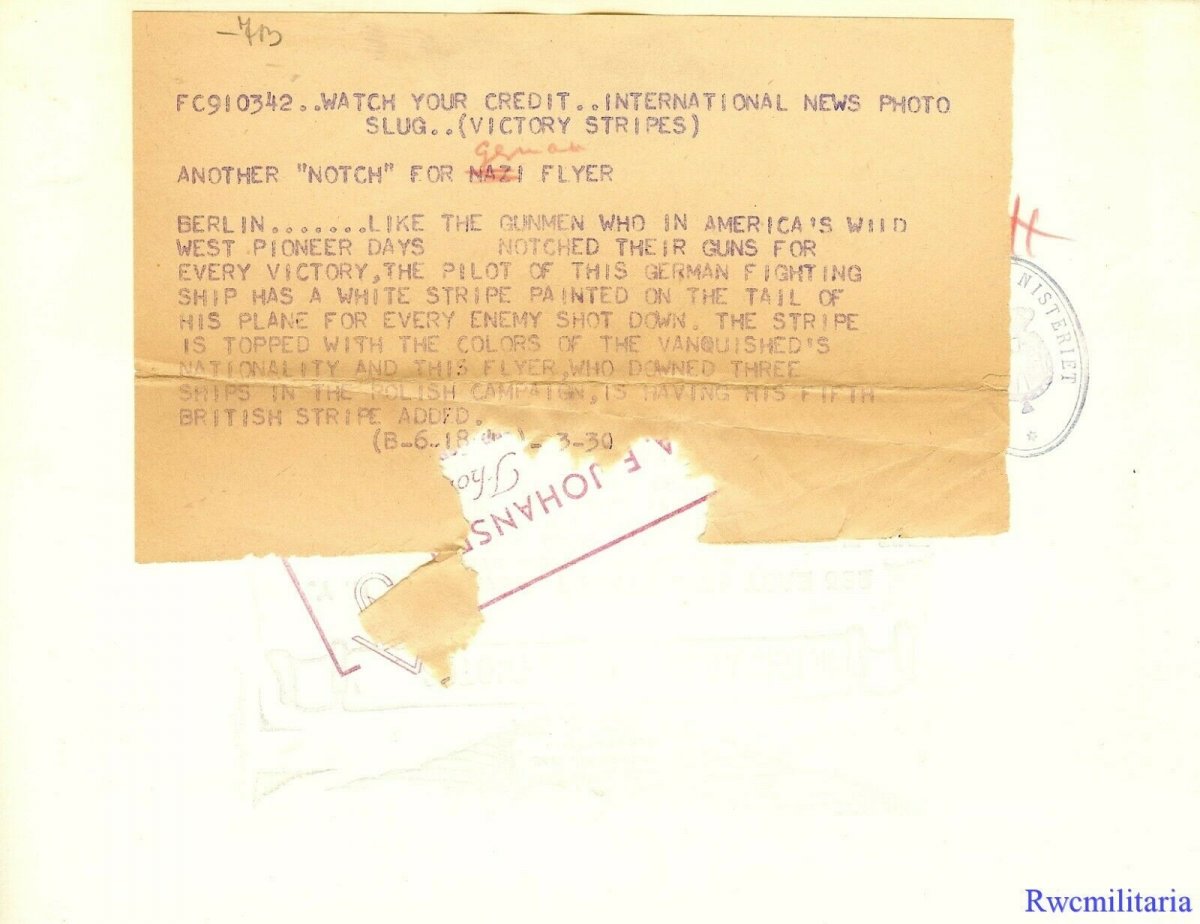 -7B
FC910342..WATCH YOUR CREDIT..INTERNATIONAL NEWS PHOTO
SLUG..(VICTORY STRIPES)
German
ANOTHER "NOTCH" FOR NAZI FLYER
H
BERLIN.......LIKE THE GUNMEN WHO IN AMERICA'S WIID
WEST PIONEER DAYS NOTCHED THEIR GUNS FOR
EVERY VICTORY,THE PILOT OF THIS GERMAN FIGHTING
SHIP HAS A WHITE STRIPE PAINTED ON THE TAIL OF
HIS PLANE FOR EVERY ENEMY SHOT DOWN. THE STRIPE
IS TOPPED WITH THE COLORS OF THE VANQUISHED'S
NATIONALITY AND THIS FLYER,WHO DOWNED THREE
SHIPS IN THE POLISH CAMPAIGN,IS HAVING HIS FIFTH
BRITISH STRIPE ADDED.
NISTERIET
F JOHANSE
Rwcmilitaria